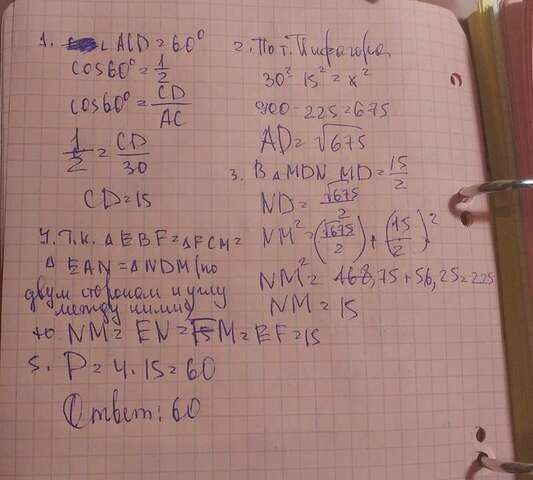 1. ∠ ACD = 60°
cos60° = 1/2
cos60° = CD/AC
1/2 = CD/30
CD = 15
2. По т. Пифагора
30² 15² = x²
900 - 225 = 675
AD = √675
3. В △ MDN MD = 15/2
ND = √675/2
NM² = (√675/2) + (15/2)²
NM² = 168,75 + 56,25 = 225
NM = 15
4. Т.к. △ EBF = △ FCM =
△ EAN = △ NDM (по
двум сторонам и углу
между ними)
то NM = EN = FM = EF = 15
5. P = 4 · 15 = 60
Ответ: 60